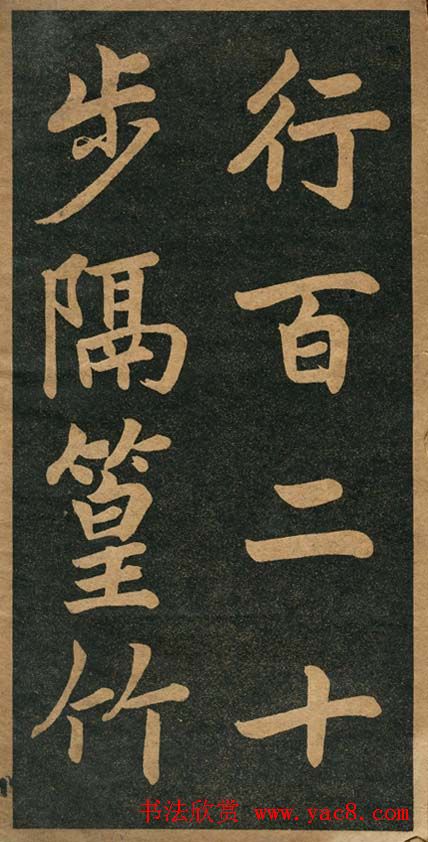 行百二十
步隔篁竹
书法欣赏 www.yac8.com